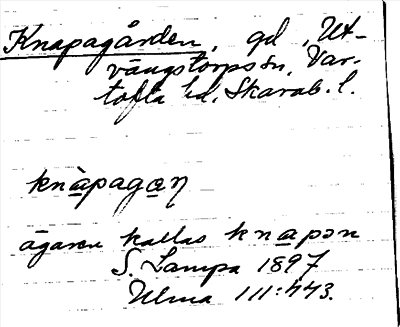 Knapagården, gd, Ut-
vängstorps sn, Var-
tofta hd, Skarab. l.
knàpagaŋ
ägaren kallas knapən
S. Lampa 1897
Ulma 111:443.